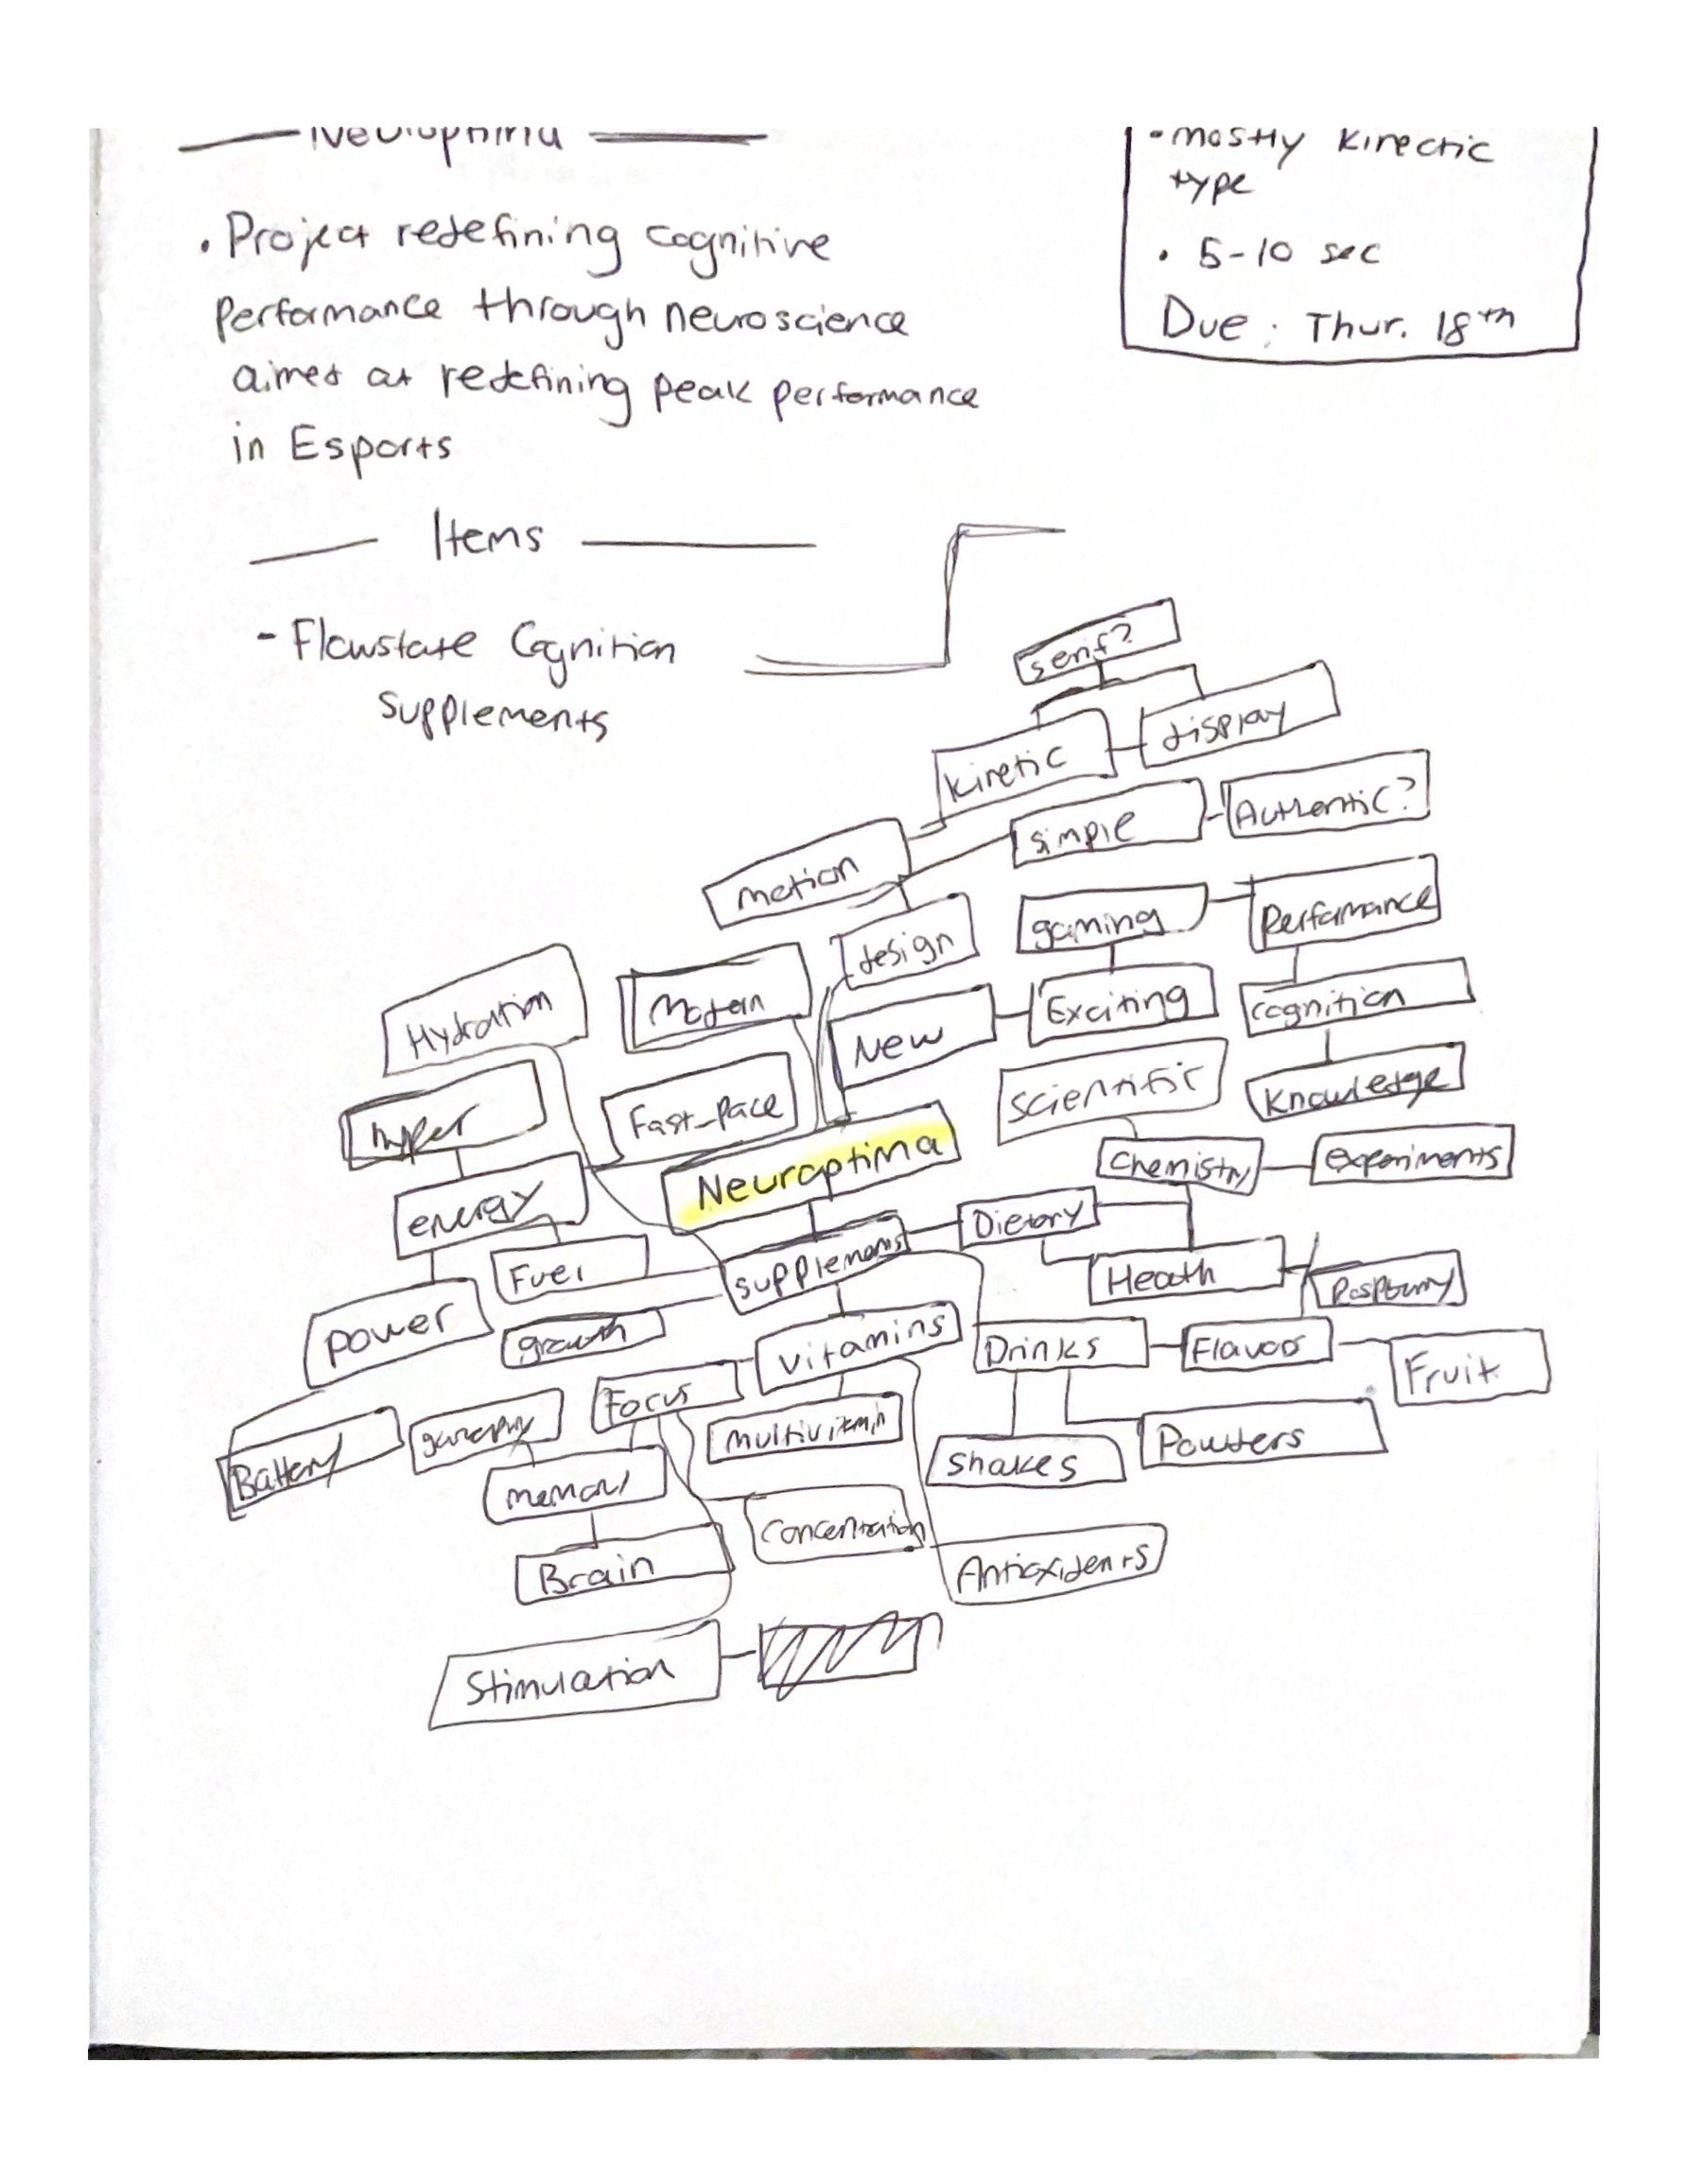 Neuroptima
• Project redefining cognitive
performance through neuroscience
aimed at redefining peak performance
in Esports
• mostly Kinectic
type
• 5-10 sec
Due: Thur. 18th
Items
- Flowstate Cognition
supplements
serif?
Kinetic
display
motion
simple
Authentic?
design
gaming
Performance
Hydration
Modern
New
Exciting
cognition
hyper
Fast-pace
scientific
Knowledge
Neuroptima
chemistry
experiments
energy
Dietary
Fuel
supplements
Health
Raspberry
power
growth
vitamins
Drinks
Flavors
Fruit
Focus
Battery
multivitamin
shakes
Powders
memory
concentration
Brain
Antioxidents
Stimulation